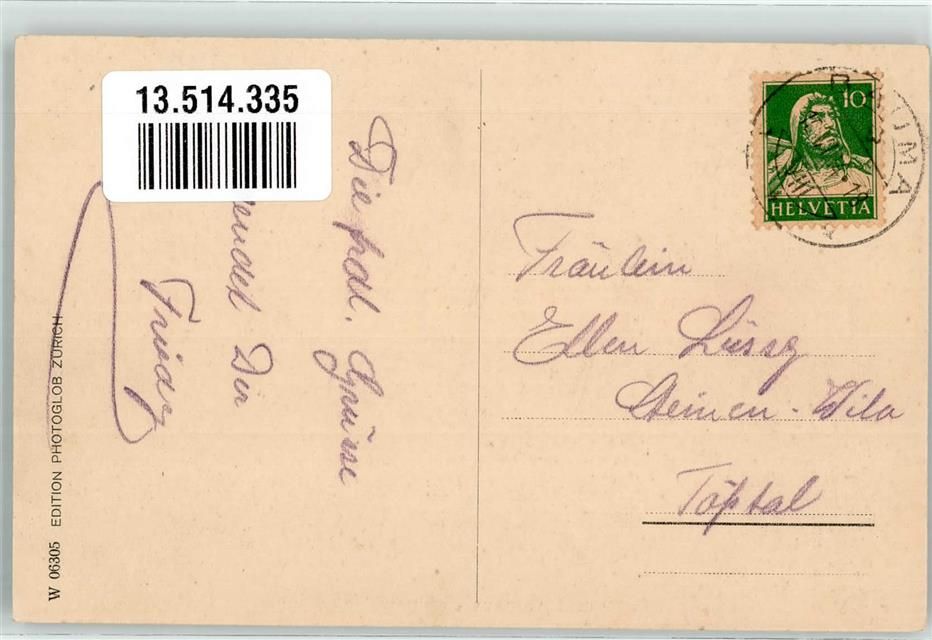 13.514.335
Die frdl. Grüsse
sendet Dir
Friedy
W 06305 EDITION PHOTOGLOB ZÜRICH
10
HELVETIA
BAUMA
Fräulein
Ellen Lüssy
Steinen-Wila
Tößtal